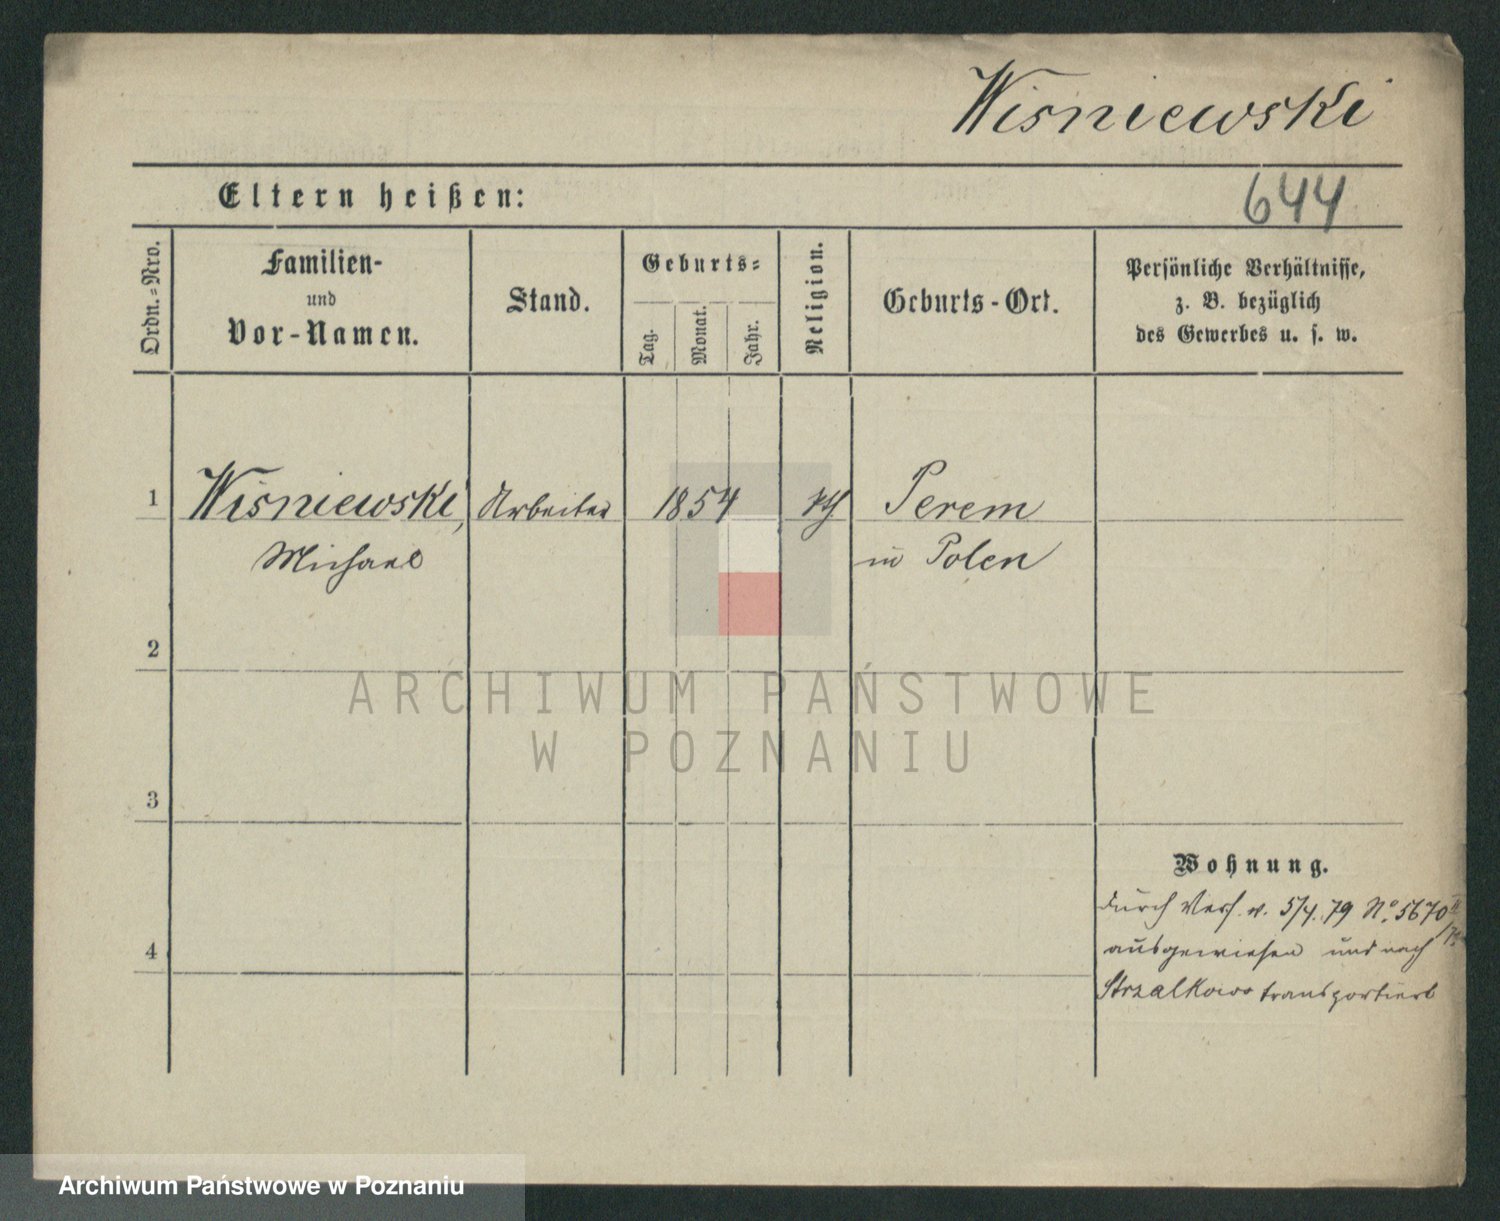 Wisniewski
Eltern heißen:
644
Ordn.-Nro.
Familien-
und
Vor-Namen.
Stand.
Geburts-
Tag.
Monat.
Jahr.
Religion.
Geburts-Ort.
Persönliche Verhältnisse,
z. B. bezüglich
des Gewerbes u. s. w.
1 Wisniewski, Arbeiter 1854 kth Perem
Michael in Polen
2
ARCHIWUM PAŃSTWOWE
W POZNANIU
3
Wohnung.
durch Verf. v. 5/4. 79 No. 5670
4
ausgewiesen und nach
Strzalkowo transportiert
Archiwum Państwowe w Poznaniu